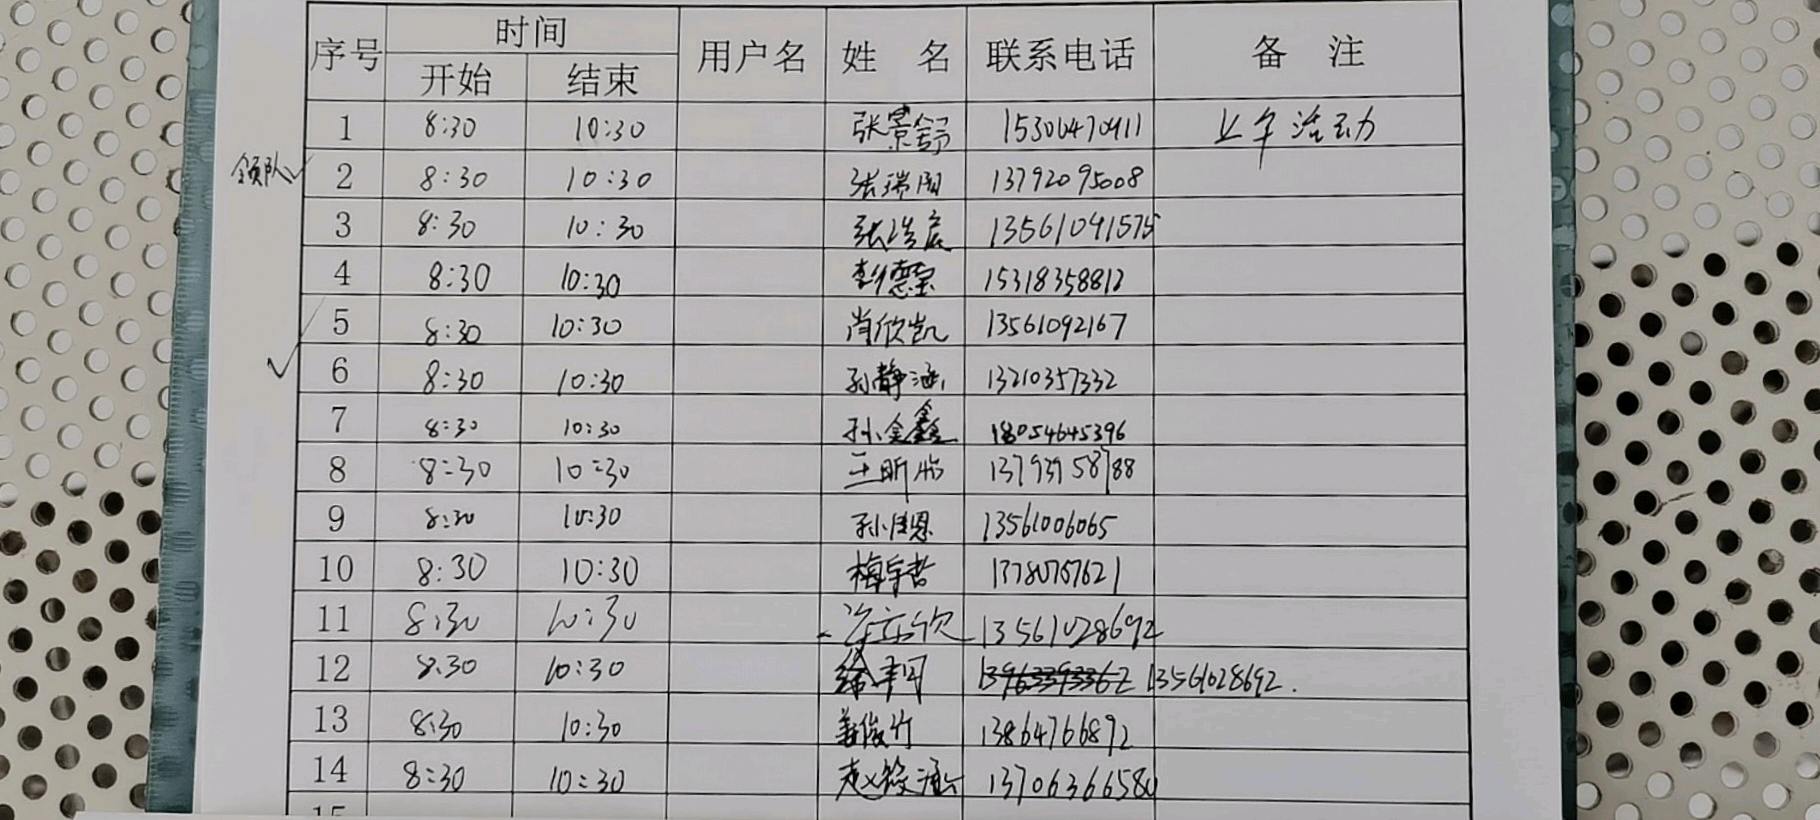 序号 时间 用户名 姓 名 联系电话 备 注
开始 结束
1 8:30 10:30 张景舒 15300470911 上午活动
领队 2 8:30 10:30 张瑞 13792095008
3 8:30 10:30 张浩宸 13561091575
4 8:30 10:30 李德玺 15318358812
5 8:30 10:30 肖欣凯 13561092167
6 8:30 10:30 孙静涵 13210357332
7 8:30 10:30 孙金鑫 18054645396
8 8:30 10:30 王昕 13793958788
9 8:30 10:30 孙佳恩 13561006065
10 8:30 10:30 梅宇哲 13780757621
11 8:30 10:30 13561028692
12 8:30 10:30 徐 13963393362 13561028692.
13 8:30 10:30 姜俊竹 13864766892
14 8:30 10:30 赵 涵 13706366580
15